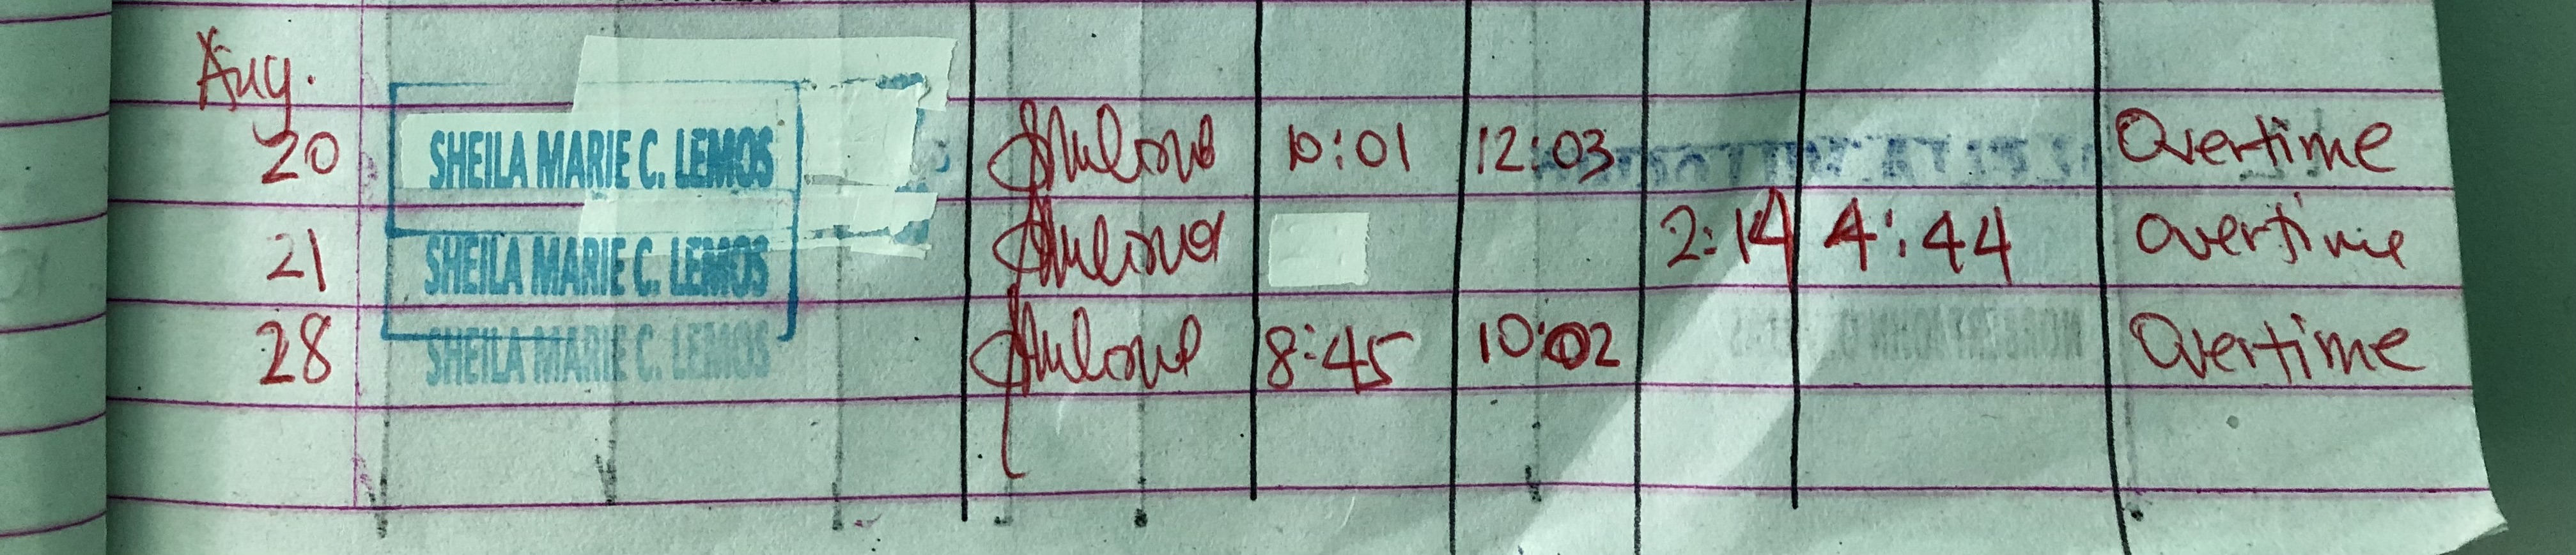 Aug.
20 SHEILA MARIE C. LEMOS 10:01 12:03 Overtime
21 SHEILA MARIE C. LEMOS 2:14 4:44 Overtime
28 SHEILA MARIE C. LEMOS 8:45 10:02 Overtime